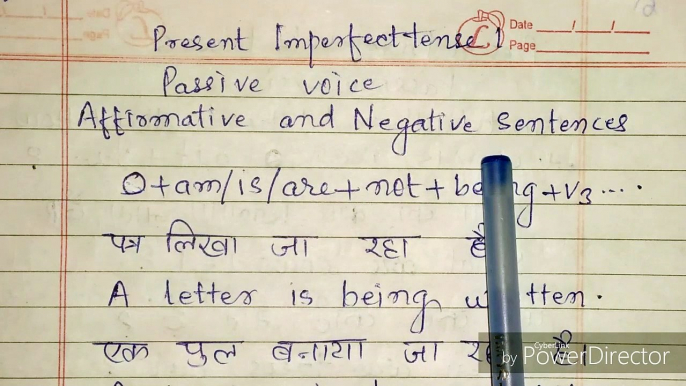 Date / /
Page
Present Imperfect tense
Passive voice
Affirmative and Negative Sentences
O+am/is/are+not+being+V3....
पत्र लिखा जा रहा है
A letter is being written.
एक पुल बनाया जा रहा है।
CyberLink
by PowerDirector